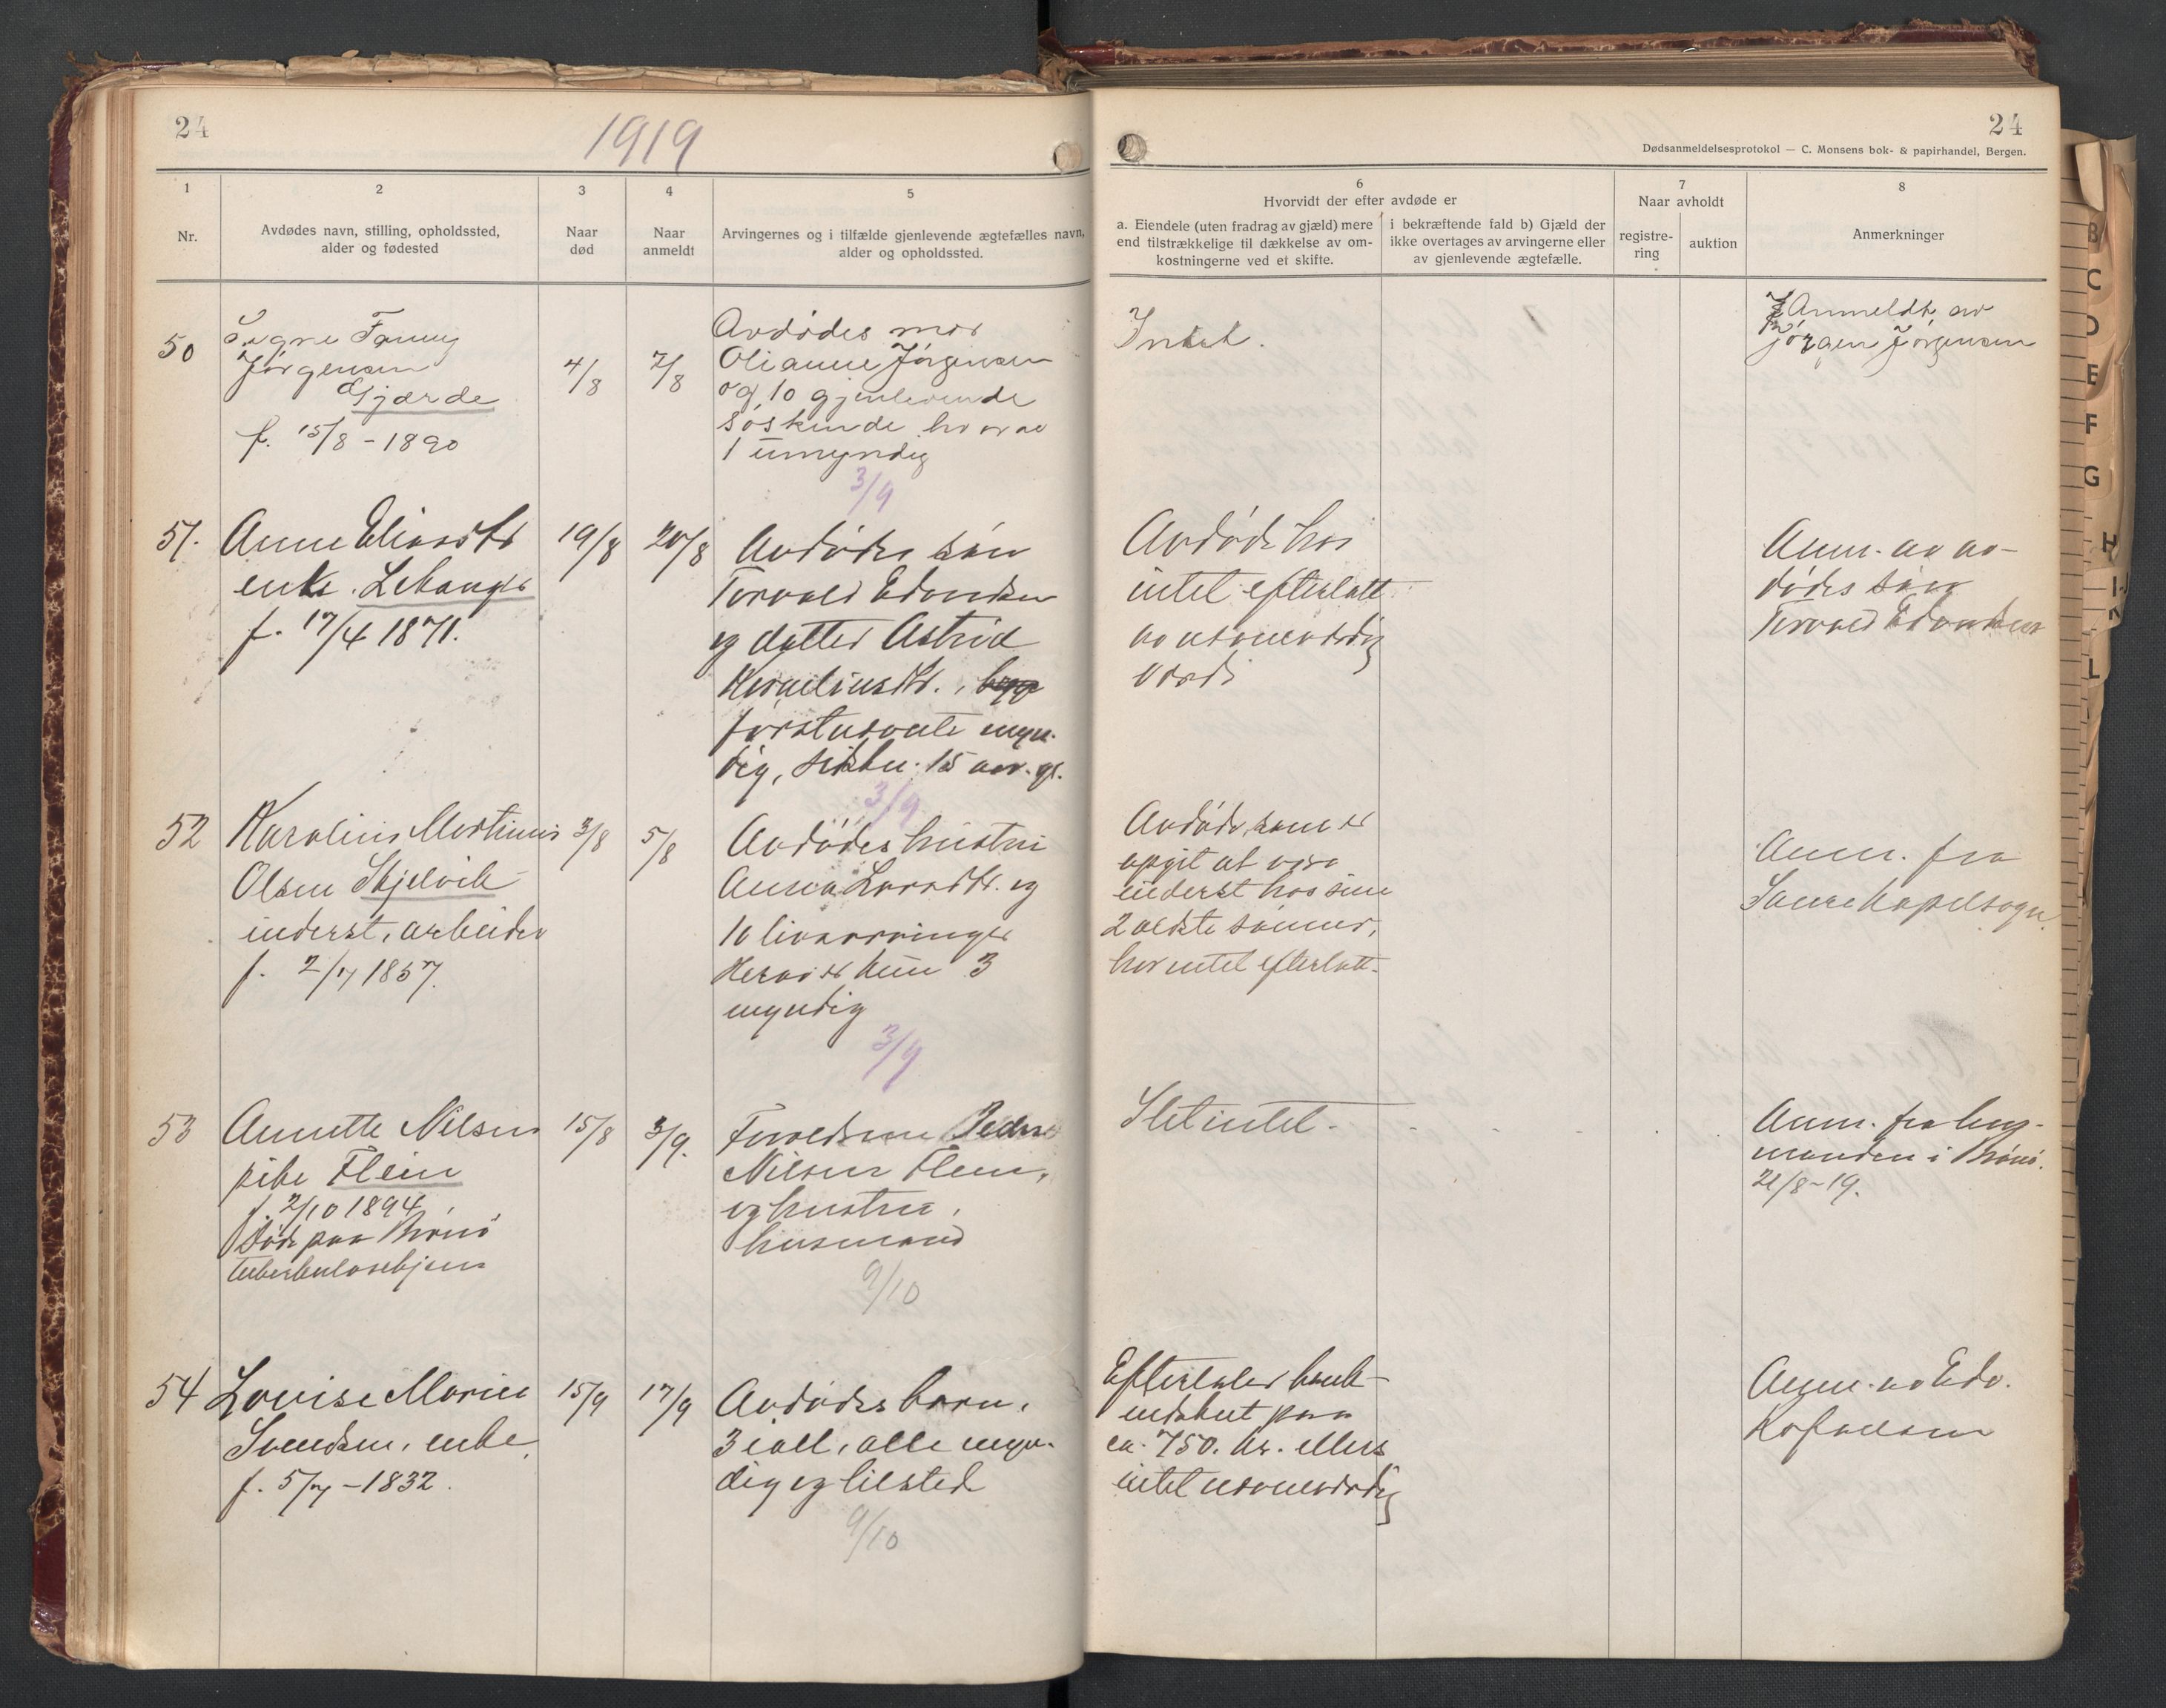 24
1919
1
2
3
4
5
Nr.
Avdødes navn, stilling, opholdssted,
alder og fødested
Naar
død
Naar
anmeldt
Arvingernes og i tilfælde gjenlevende ægtefælles navn,
alder og opholdssted.
50
Signe Fanny
Jörgensen
Gjærde
f. 15/8 - 1890
4/8
7/8
Avdödes mor
Olianne Jörgensen
og 10 gjenlevende
söskende hvorav
1 umyndig
3/9
51.
Anne Eliasdtr
enke. Lekanger
f. 17/4 1871.
19/8
20/8
Avdödes sön
Torvald Edvardsen
og datter Astrid
Korneliusdtr.,
förstnevnte myn-
dig, sidstn. 15 aar. gl.
3/9
52
Karolius Martinus
Olsen Skjelvik
inderst, arbeider
f. 2/7 1857.
3/8
5/8
Avdödes hustru
Anna Larsdtr. og
10 livsarvinger
Herav er kun 3
myndig
3/9
53
Annette Nilsen
pike Flein
f. 2/10 1894
Död paa Brönö
tuberkulosehjem
15/8
3/9.
Forældrene Peder
Nilsen Flein,
og hustru,
husmand
9/10
54
Lovise Marie
Svendsen, enke
f. 5/7 - 1832.
15/9
17/9
Avdödes barn,
3 i all, alle myn-
dig og tilsted
9/10
24
Dødsanmeldelsesprotokol — C. Monsens bok- & papirhandel, Bergen.
6
Hvorvidt der efter avdøde er
a. Eiendele (uten fradrag av gjæld) mere
end tilstrækkelige til dækkelse av om-
kostningerne ved et skifte.
i bekræftende fald b) Gjæld der
ikke overtages av arvingerne eller
av gjenlevende ægtefælle.
7
Naar avholdt
registre-
ring
auktion
8
Anmerkninger
Intet.
Anmeldt av
Jörgen Jörgensen
Avdöde har
intet efterlatt
av nevneværdig
værdi
Anm. av av-
dödes sön
Torvald Edvardsen
Avdöde, som er
opgit at være
inderst hos sine
2 ældste sönner,
har intet efterlatt.
Anm. fra
Sauren kapelsogn.
Slet intet.
Anm. fra lens-
manden i Brönö.
21/8-19.
Efterlater bank-
indskut paa
ca. 750. kr. ellers
intet nevneværdig
Anm. av Edv.
Kofoedsen
B
C
D
E
F
G
H
L